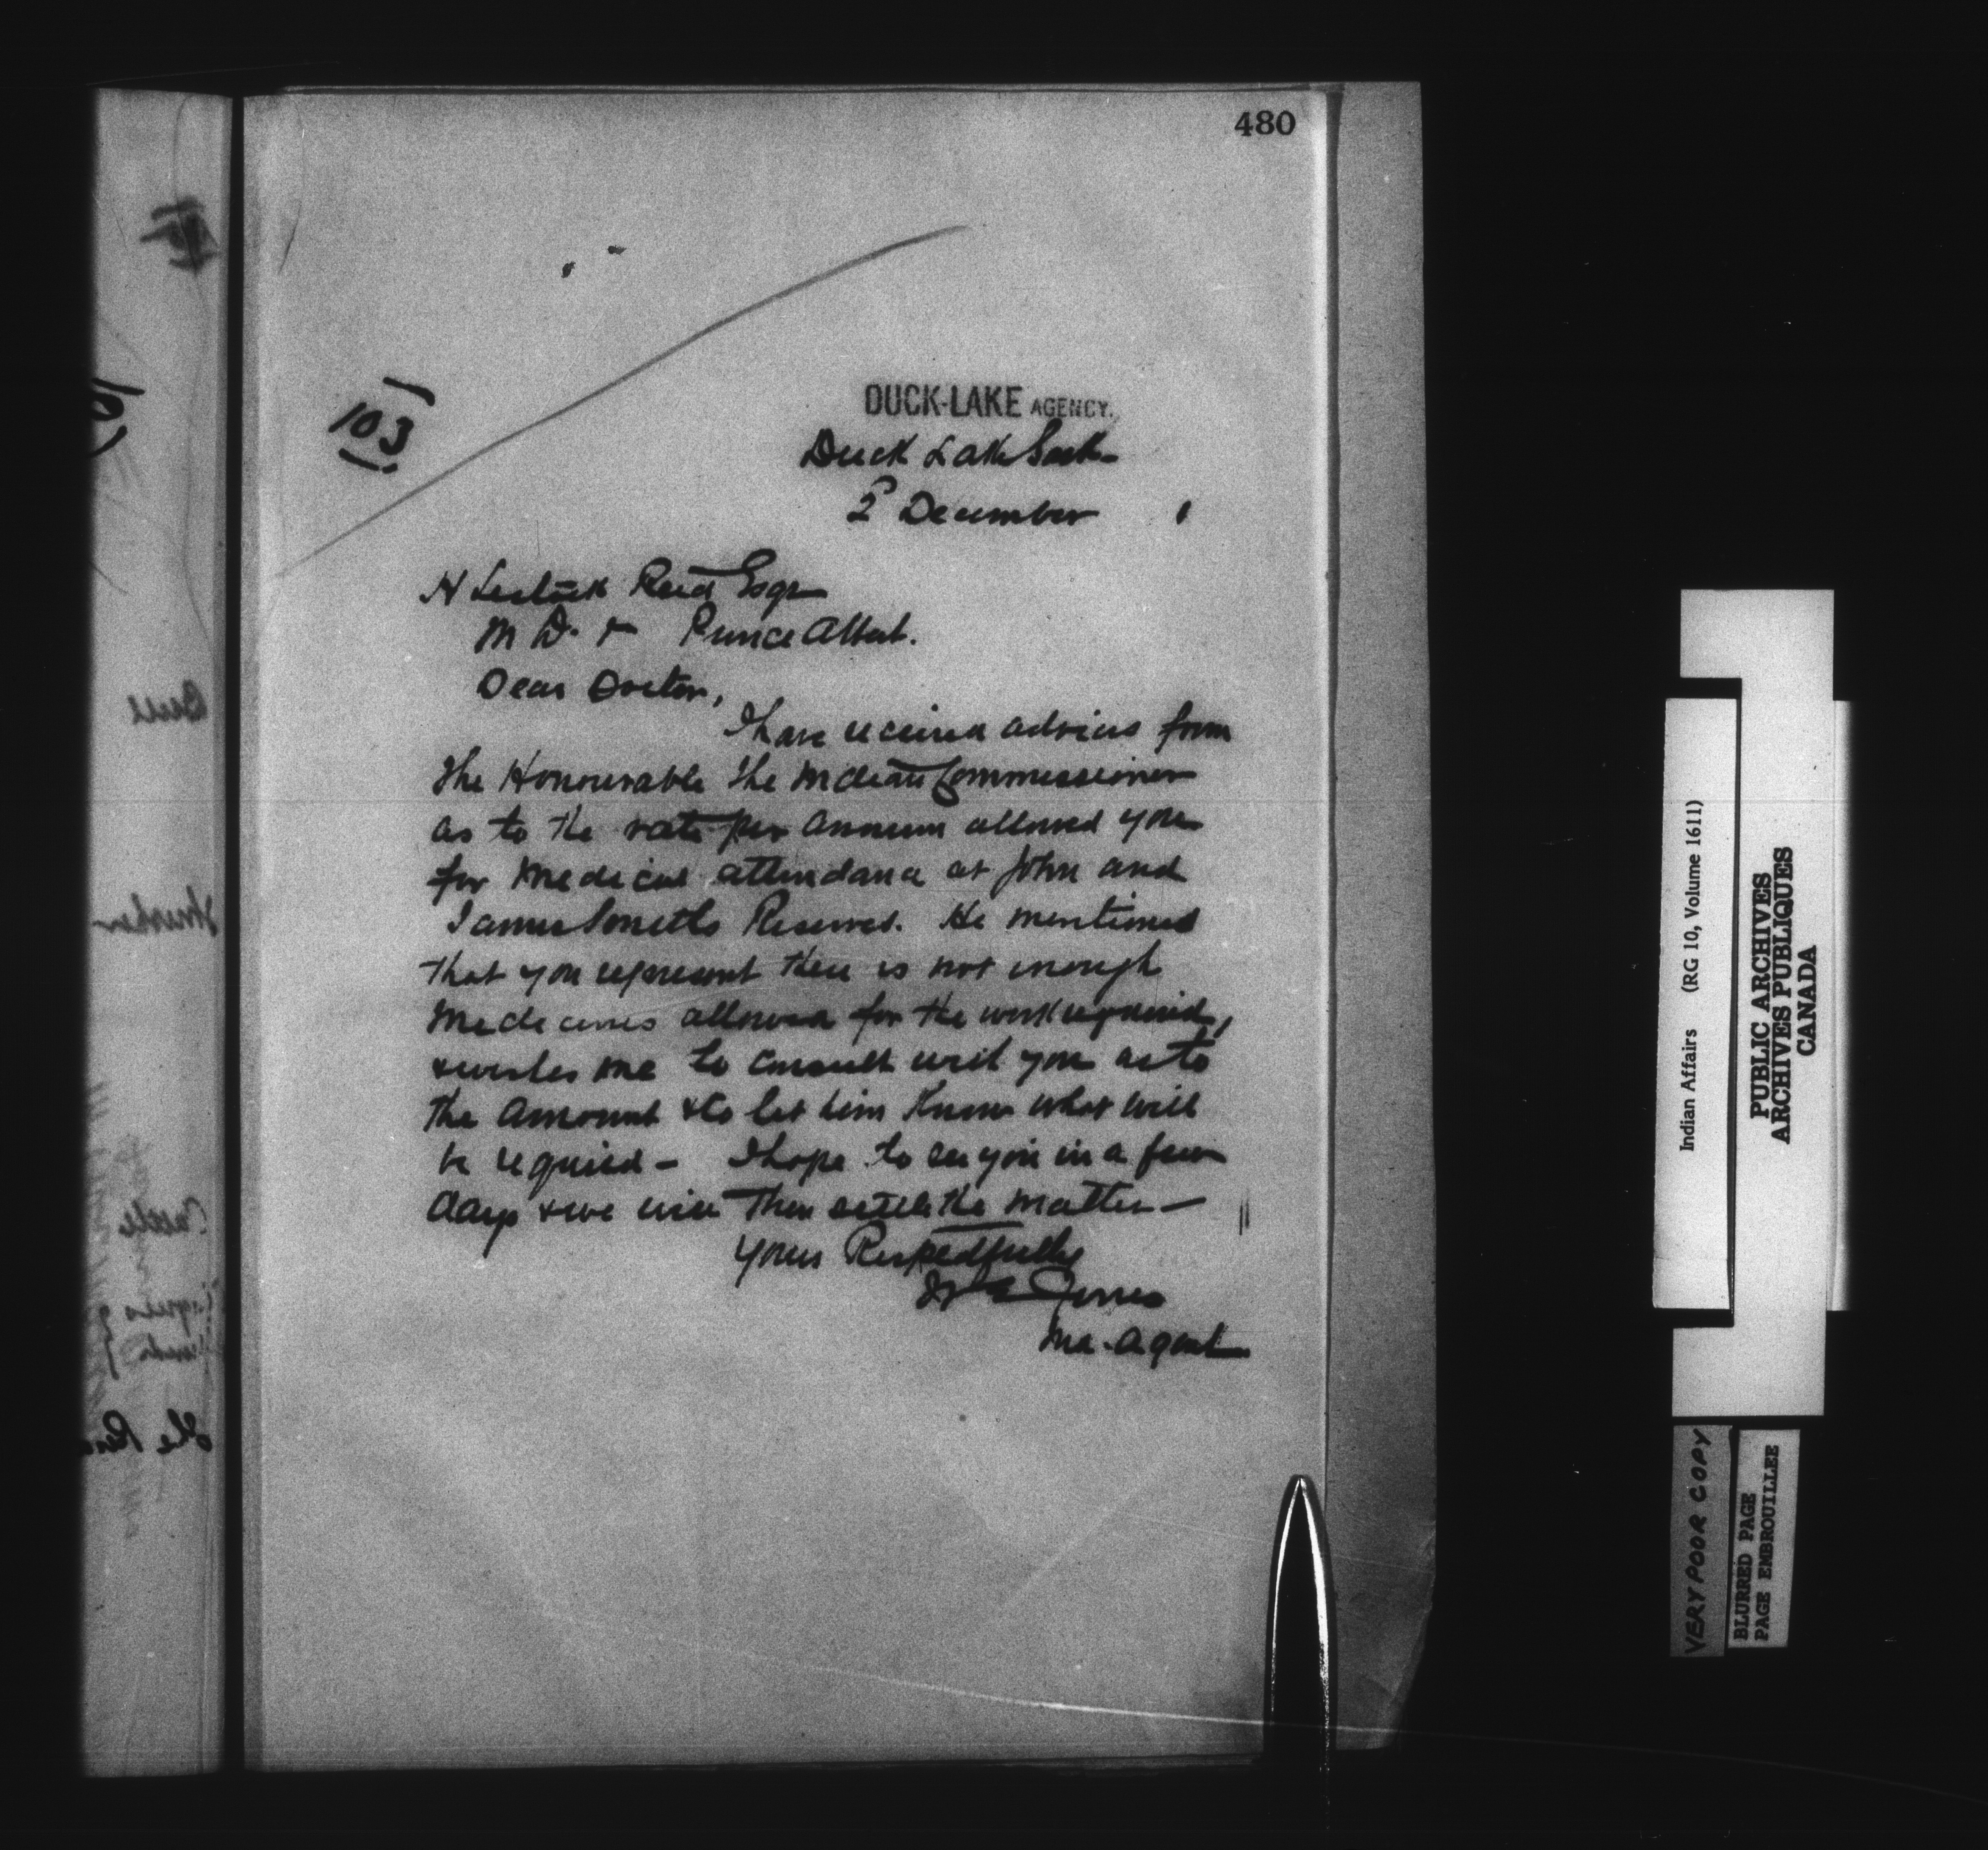 480
103
DUCK-LAKE AGENCY.
Duck Lake Sask
2 December 1
H Reid Esqr
M D. Prince Albert.
Dear Doctor,
I have received advices from
the Honourable the Indian Commissioner
as to the rate per annum allowed you
for Medical attendance at John and
James Smiths Reserves. He mentioned
that you represent there is not enough
Medicines allowed for the work required,
& wishes me to consult with you as to
the amount & to let him know what will
be required - I hope to see you in a few
days & we will then settle the matter -
Yours Respectfully
Jones
Ind. Agent
Indian Affairs (RG 10, Volume 1611)
PUBLIC ARCHIVES
ARCHIVES PUBLIQUES
CANADA
VERY POOR COPY
BLURRED PAGE
PAGE EMBROUILLEE